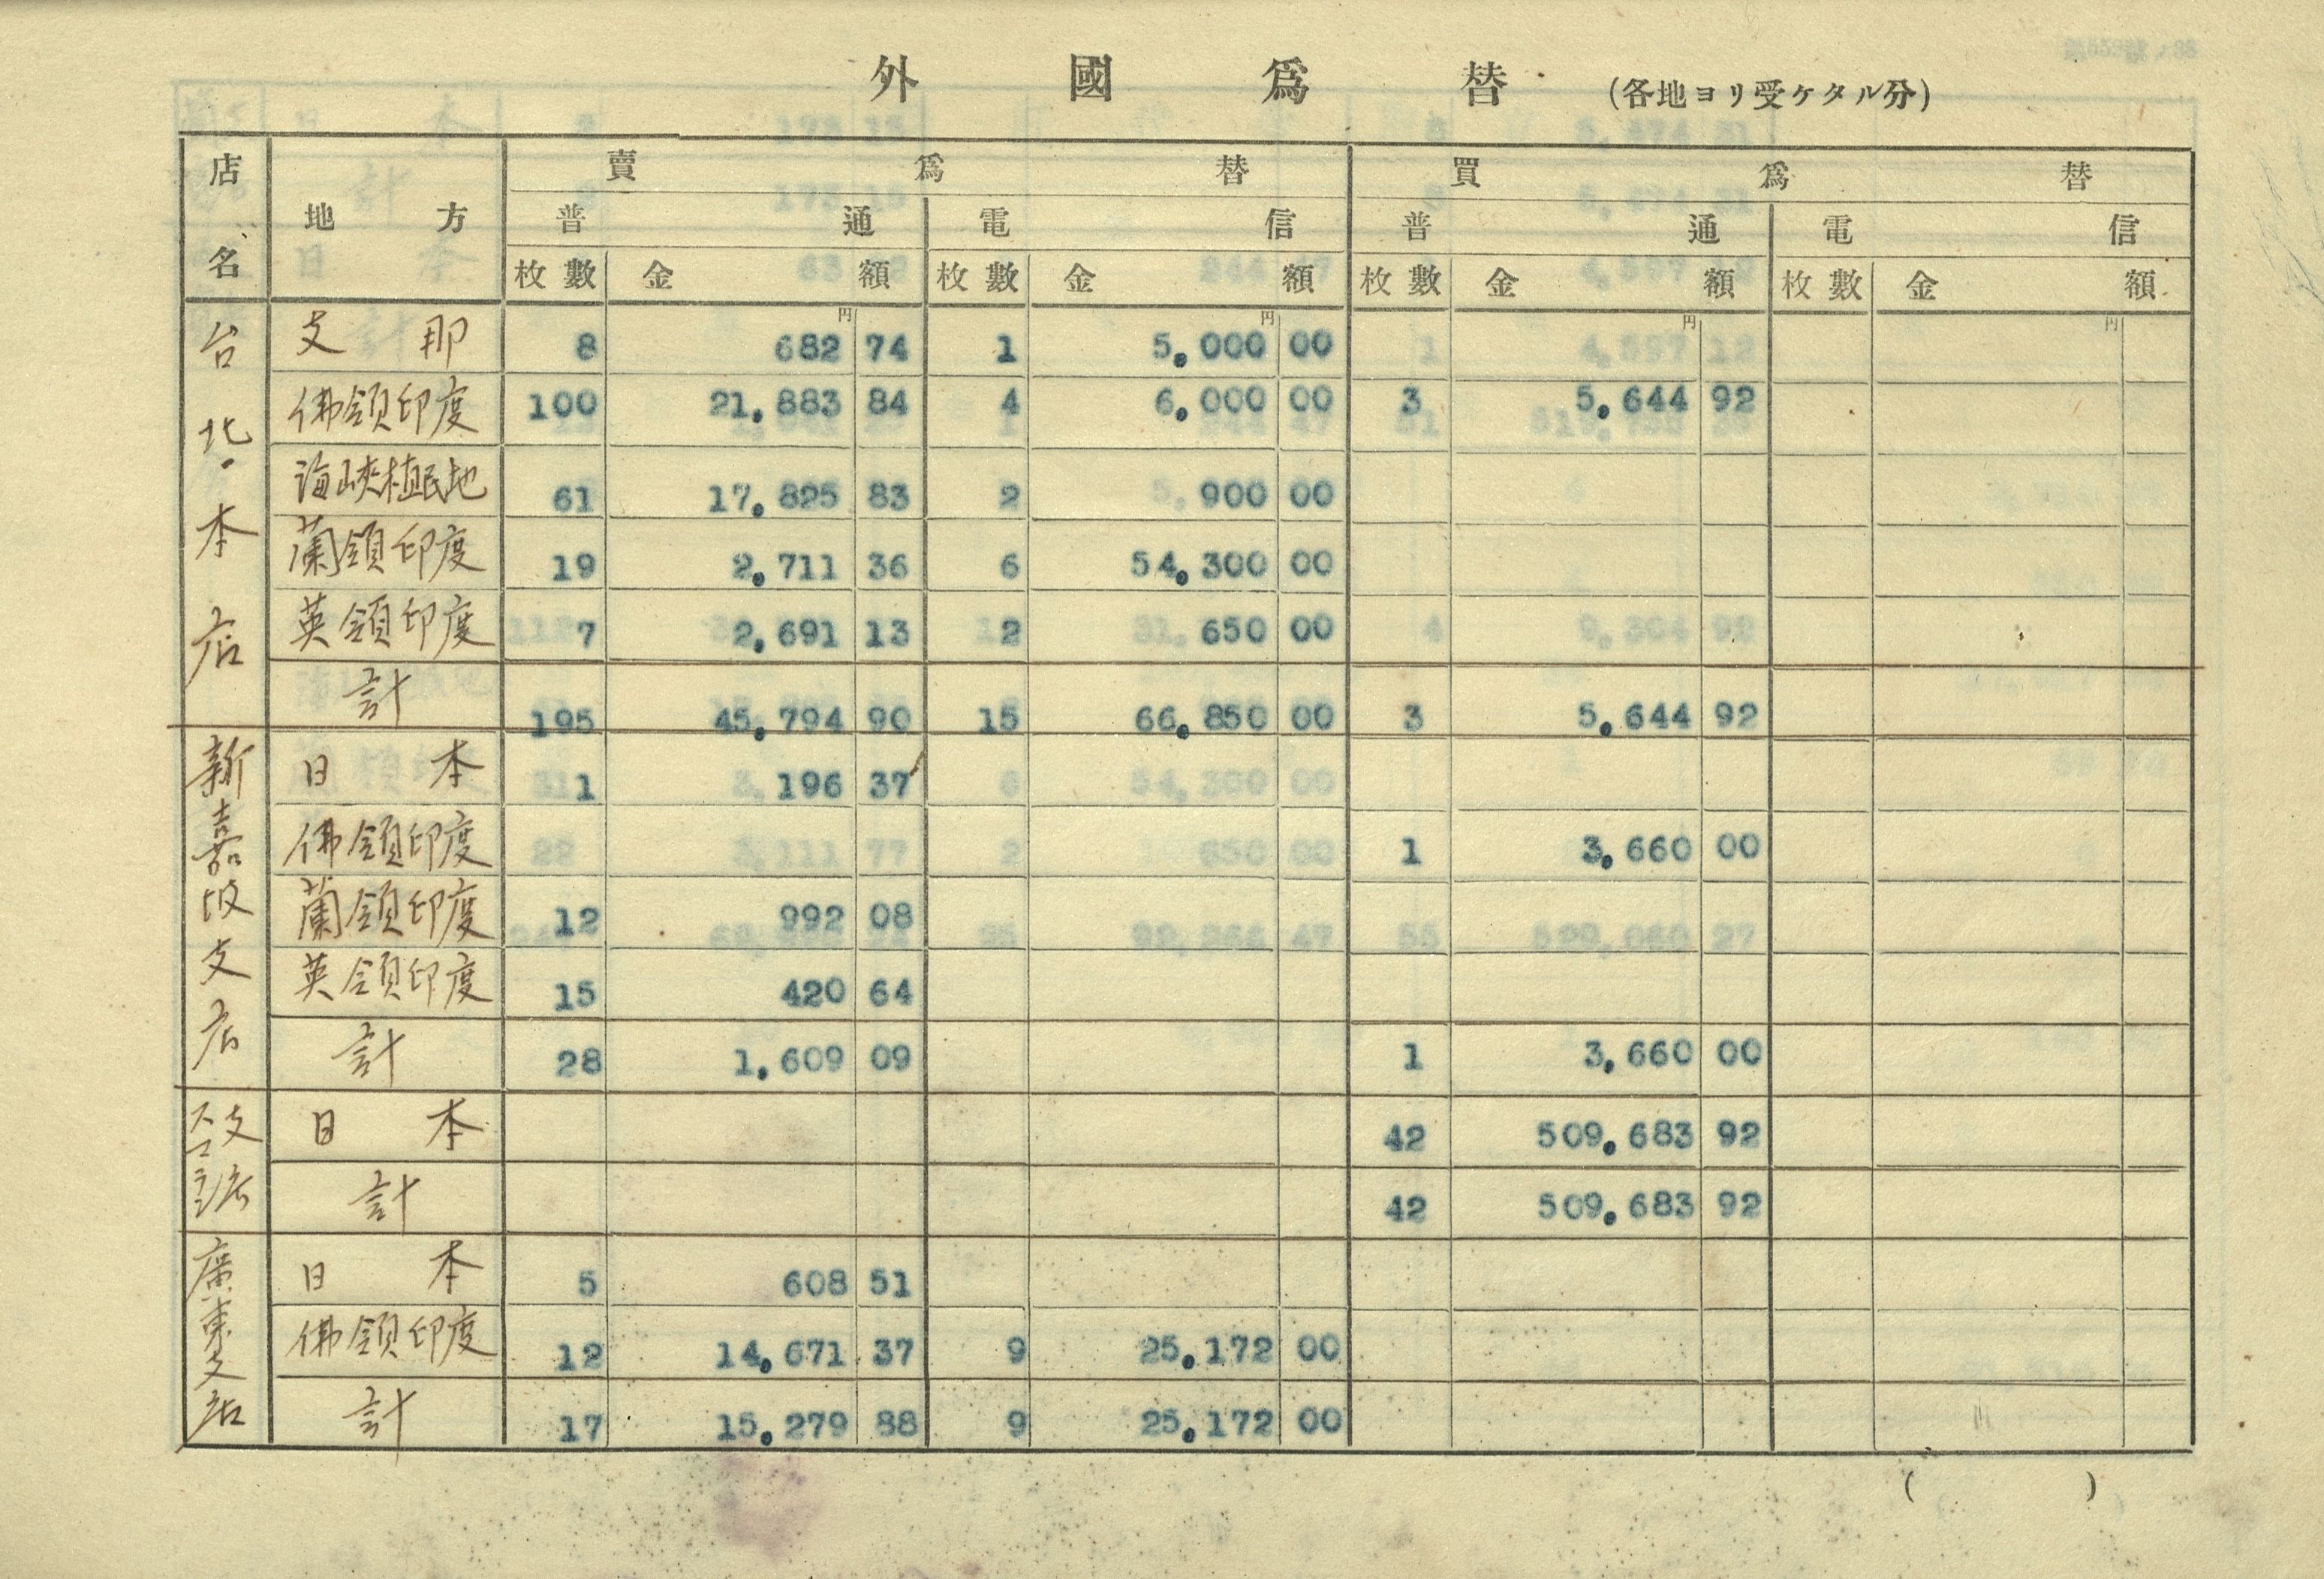 外國爲替 (各地ヨリ受ケタル分)
店名 地方 賣爲替 買爲替
普通 電信 普通 電信
枚數 金額 枚數 金額 枚數 金額 枚數 金額
円 円 円 円
台北本店 支那 8 682 74 1 5,000 00
佛領印度 100 21,883 84 4 6,000 00 3 5,644 92
海峽植民地 61 17,825 83 2 900 00
蘭領印度 19 2,711 36 6 54,300 00
英領印度 7 2,691 13 2 650 00
計 195 45,794 90 15 66,850 00 3 5,644 92
新嘉坡支店 日本 1 196 37
佛領印度 1 3,660 00
蘭領印度 12 992 08
英領印度 15 420 64
計 28 1,609 09 1 3,660 00
支店 日本 42 509,683 92
計 42 509,683 92
廣東支店 日本 5 608 51
佛領印度 12 14,671 37 9 25,172 00
計 17 15,279 88 9 25,172 00
( )